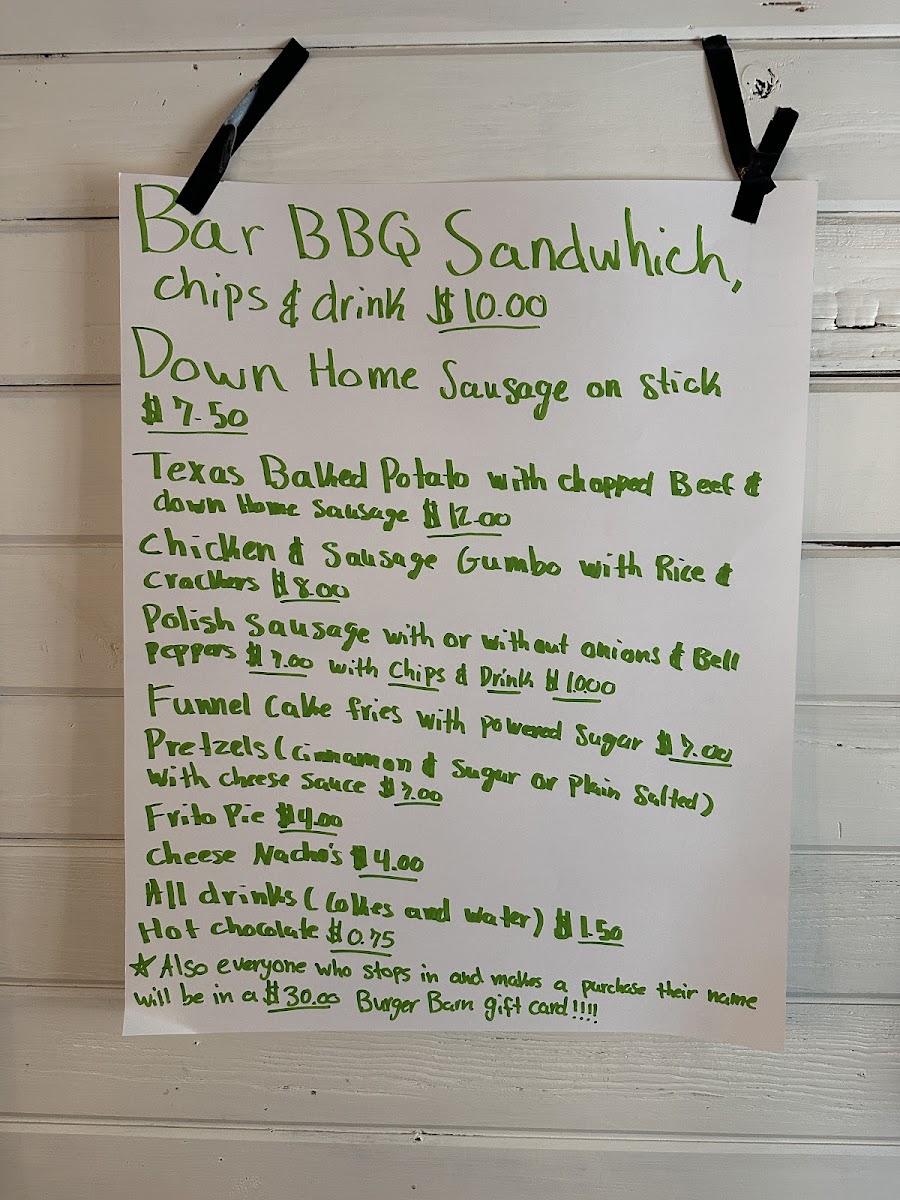 Bar BBQ Sandwhich,
chips & drink $10.00
Down Home Sausage on stick
$7.50
Texas Baked Potato with chopped Beef &
down Home Sausage $12.00
Chicken & Sausage Gumbo with Rice &
crackers $8.00
Polish Sausage with or without onions & Bell
peppers $7.00 with Chips & Drink $10.00
Funnel Cake fries with powered Sugar $7.00
Pretzels (cinnamon & Sugar or Plain Salted)
with cheese sauce $7.00
Frito Pie $4.00
Cheese Nacho's $4.00
All drinks (Cokes and water) $1.50
Hot chocolate $0.75
☆ Also everyone who stops in and makes a purchase their name
will be in a $30.00 Burger Barn gift card!!!!